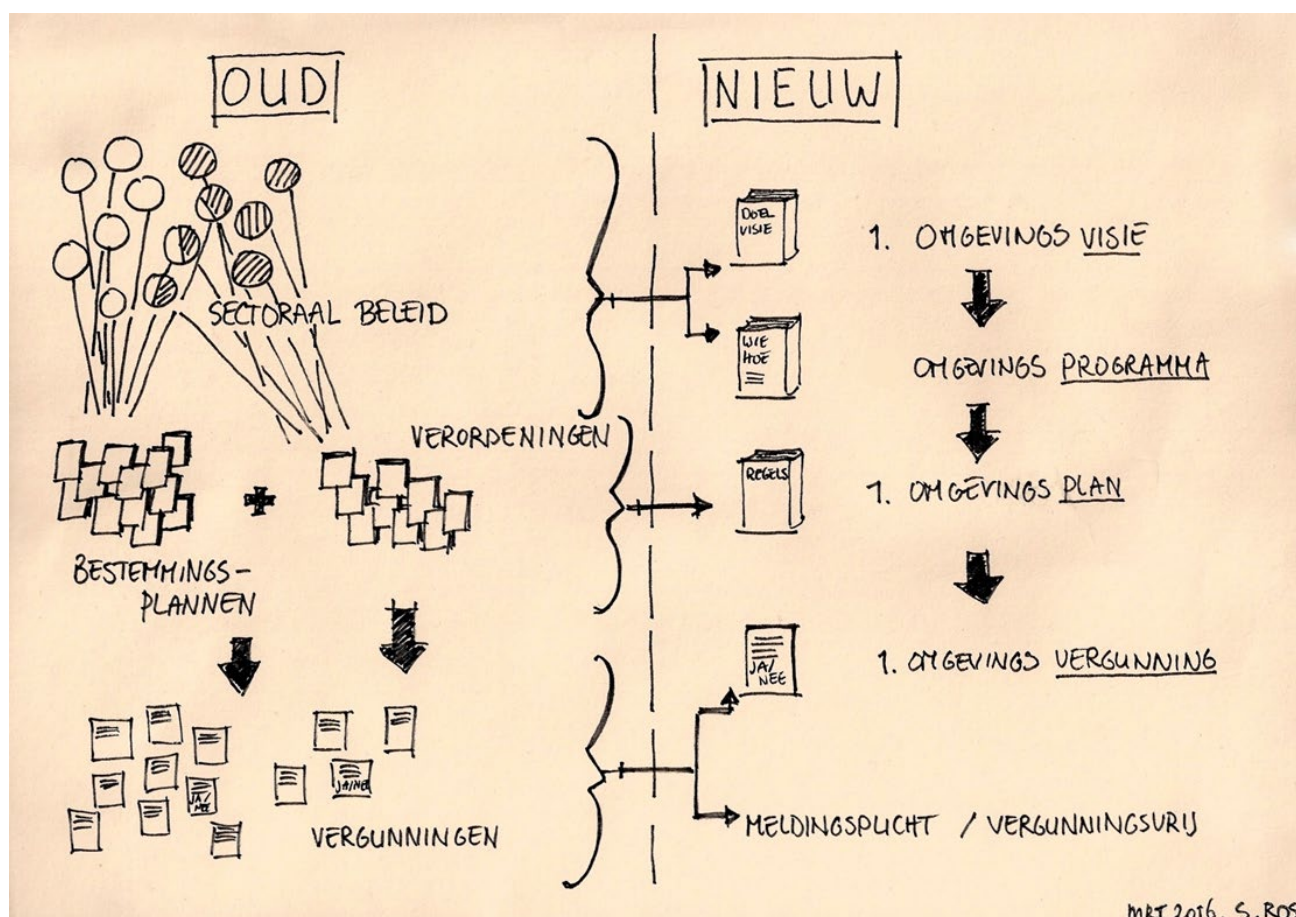 OUD
SECTORAAL BELEID
VERORDENINGEN
BESTEMMINGS-
PLANNEN
JA/
NEE
JA/NEE
VERGUNNINGEN
NIEUW
DOEL
VISIE
1. OMGEVINGS VISIE
WIE
HOE
OMGEVINGS PROGRAMMA
REGELS
1. OMGEVINGS PLAN
JA/
NEE
1. OMGEVINGS VERGUNNING
MELDINGSPLICHT / VERGUNNINGSVRIJ
MRT 2016. S. ROS